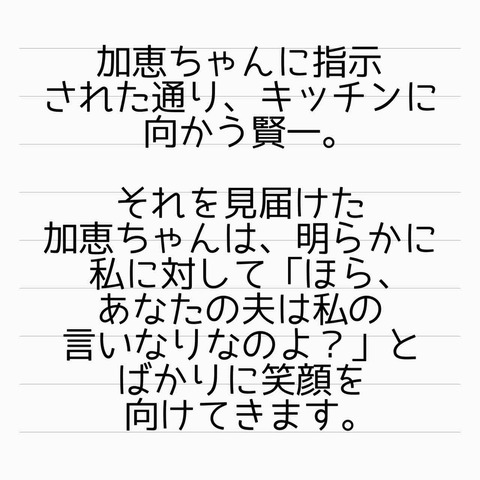 加恵ちゃんに指示
された通り、キッチンに
向かう賢一。
それを見届けた
加恵ちゃんは、明らかに
私に対して「ほら、
あなたの夫は私の
言いなりなのよ？」と
ばかりに笑顔を
向けてきます。